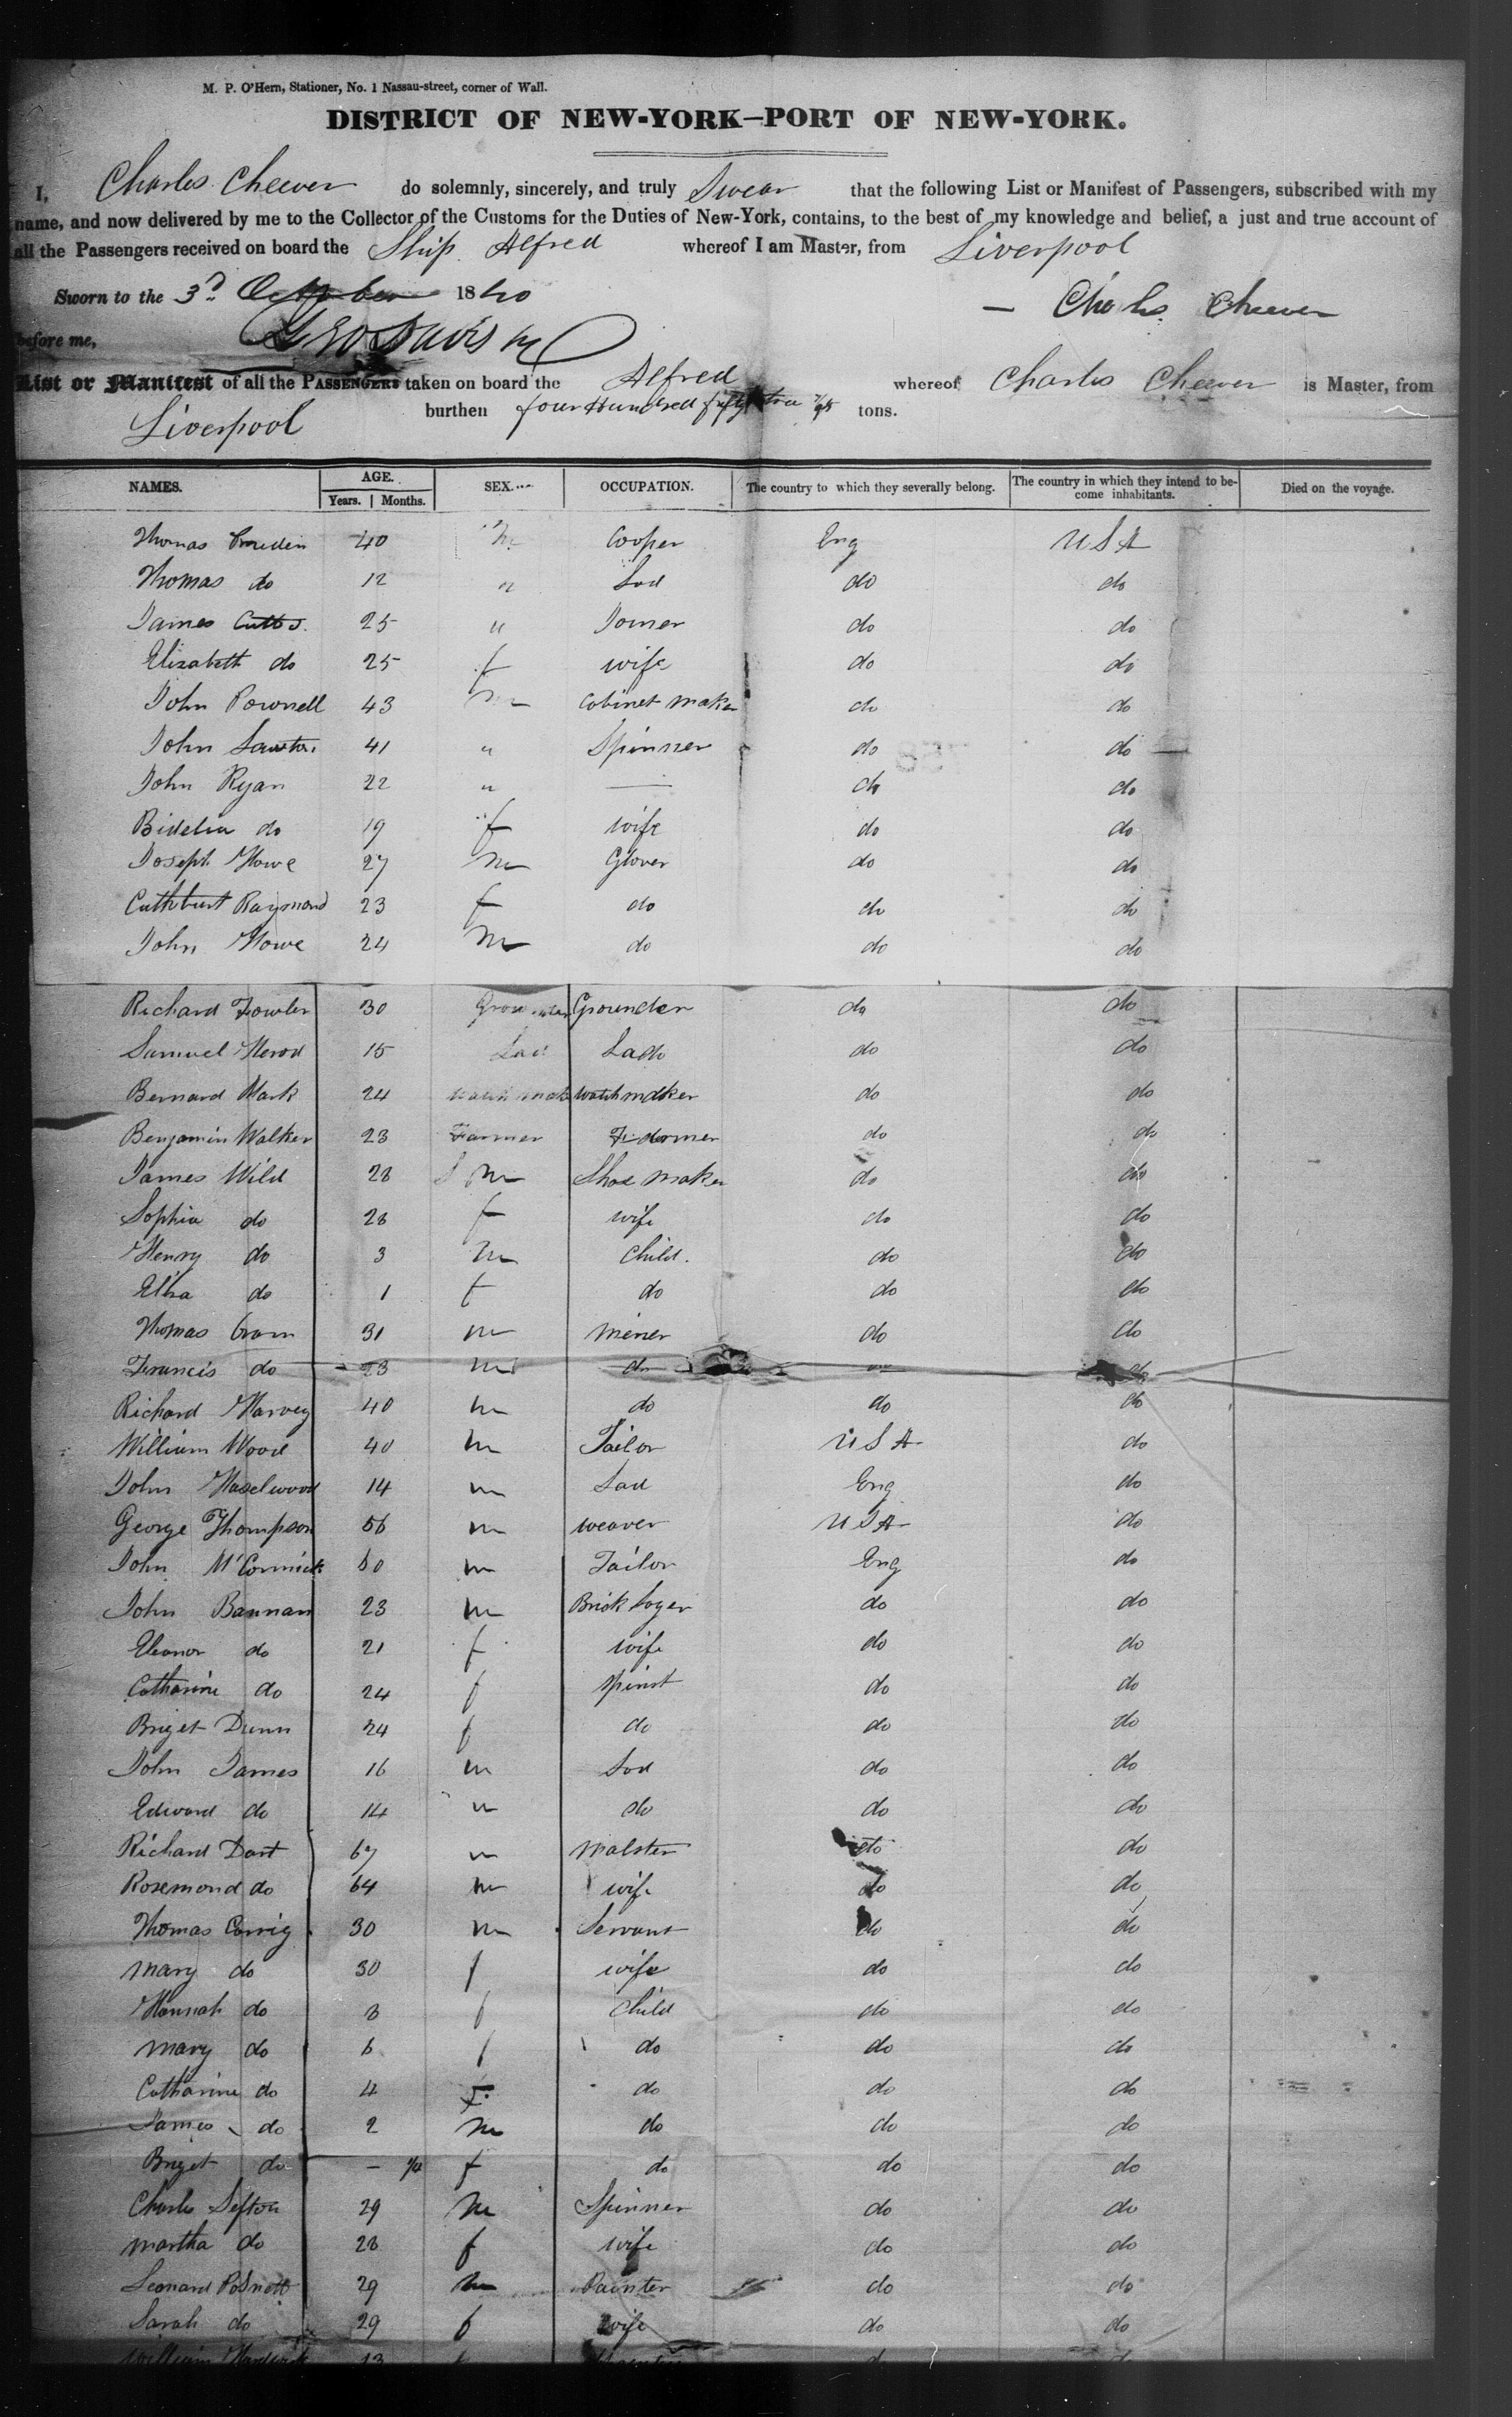 M. P. O'Hern, Stationer, No. 1 Nassau-street, corner of Wall.
DISTRICT OF NEW-YORK—PORT OF NEW-YORK.
I, Charles Cheever do solemnly, sincerely, and truly Swear that the following List or Manifest of Passengers, subscribed with my
name, and now delivered by me to the Collector of the Customs for the Duties of New-York, contains, to the best of my knowledge and belief, a just and true account of
all the Passengers received on board the Ship Alfred whereof I am Master, from Liverpool
Sworn to the 3d October 1840 — Charles Cheever
before me, Geo Davis
List or Manifest of all the PASSENGERS taken on board the Alfred whereof Charles Cheever is Master, from
Liverpool burthen four Hundred fifty tons.
NAMES. AGE. SEX. OCCUPATION. The country to which they severally belong. The country in which they intend to be-come inhabitants. Died on the voyage.
Years. Months.
Thomas 40 m Cooper Eng USA
Thomas do 12 " Lad do do
James Cutts 25 " Joiner do do
Elizabeth do 25 f wife do do
John Pownell 43 m Cabinet Maker do do
John Lawton 41 " Spinner do do
John Ryan 22 " — do do
Bidelia do 19 f wife do do
Joseph Howe 27 m Glover do do
Cuthburt Raymond 23 f do do do
John Howe 24 m do do do
Richard Fowler 30 Grounder Grounder do do
Samuel Herod 15 Lad Lad do do
Bernard Mark 24 watch mak watchmaker do do
Benjamin Walker 23 Farmer Farmer do do
James Wild 28 m Shoe Maker do do
Sophia do 28 f wife do do
Henry do 3 m Child. do do
Eliza do 1 f do do do
Thomas 31 m Miner do do
Francis do 23 m do do do
Richard Harvey 40 m do do do
William Wood 40 m Tailor USA do
John Haselwood 14 m Lad Eng do
George Thompson 56 m weaver USA do
John McCormick 60 m Tailor Eng do
John Bannan 23 m Brick Layer do do
Eleanor do 21 f wife do do
Catharine do 24 f Spinst do do
Briget Dunn 24 f do do do
John James 16 m Lad do do
Edward do 14 m do do do
Richard Dart 67 m Malster do do
Rosemond do 64 m wife do do
Thomas Corrig 30 m Servant do do
Mary do 30 f wife do do
Hannah do 8 f Child do do
Mary do 6 f do do do
Catharine do 4 f do do do
James do 2 m do do do
Briget do — 1/4 f do do do
Charles Sefton 29 m Spinner do do
Martha do 28 f wife do do
Leonard Posnett 29 m Painter do do
Sarah do 29 f wife do do
William Hardwick 13